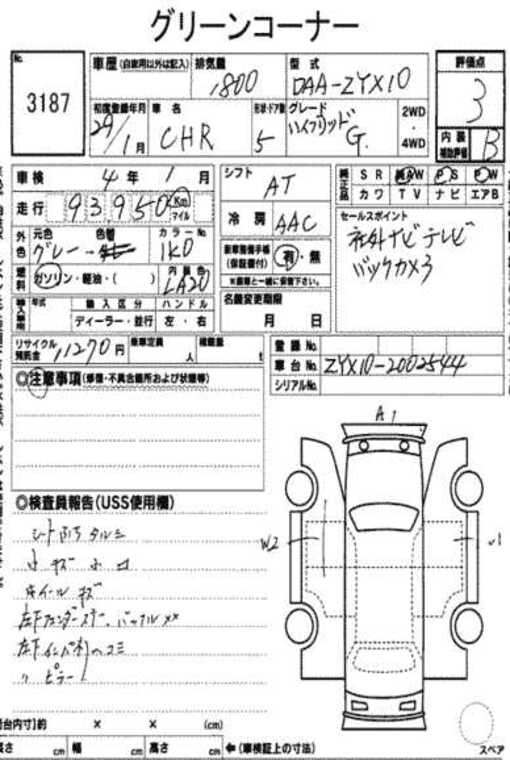 グリーンコーナー
No.
3187
車歴 (自家用以外は記入)
排気量
1800
型式
DAA-ZYX10
評価点
3
初度登録年月
29/1月
車名
CHR
形状・ドア数
5
グレード
ハイブリッド G.
2WD
・
4WD
内装
補助評価
B
車検 4年 1月
シフト
AT
純正品
SR AW PS PW
カワ TV ナビ エアB
走行 93,950 Km マイル
冷房 AAC
セールスポイント
社外ナビ テレビ
バックカメラ
外色
元色
グレー
色替
カラーNo.
1K0
新車整備手帳
(保証書付)
有・無
※書類と一緒に保管下さい。
燃料
ガソリン・軽油・( )
内装色
LA20
名義変更期限
月 日
輸入車用
年式
輸入区分
ハンドル
ディーラー・並行
左・右
リサイクル
預託金
11270円
乗車定員
人
積載量
t
登録No.
車台No. ZYX10-2002544
シリアルNo.
◎注意事項 (修復・不具合箇所および状態等)
A1
◎検査員報告 (USS使用欄)
シート汚れ タルミ
小キズ 小凹
ホイール キズ
左Fフェンダーステー、バッフル××
左Fインパネ凹ヘコミ
〃ピラー
W2
(cm)
長さ cm 幅 cm 高さ cm ← (車検証上の寸法)
スペア